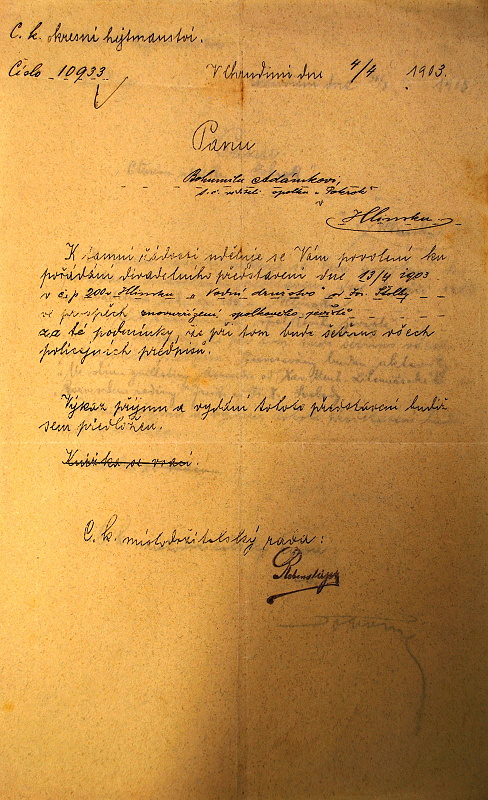 C. k. okresní hejtmanství.
Číslo 10933
V Chrudimi dne 4/4 1903.
Panu
Bohumilu Adámkovi,
spolku „Pokrok“
v
Hlinsku
K žádosti uděluje se Vám povolení ku
pořádání divadelního představení dne 13/4 1903
v č. p. 200 v Hlinsku „Vodní družstvo“ od Jos. Štolby
ve prospěch spolkového jeviště
za té podmínky, že při tom bude šetřeno všech
policejních předpisů.
Výkaz příjmu a vydání tohoto představení budiž
sem předložen.
Knížka se vrací.
C. k. místodržitelský rada: